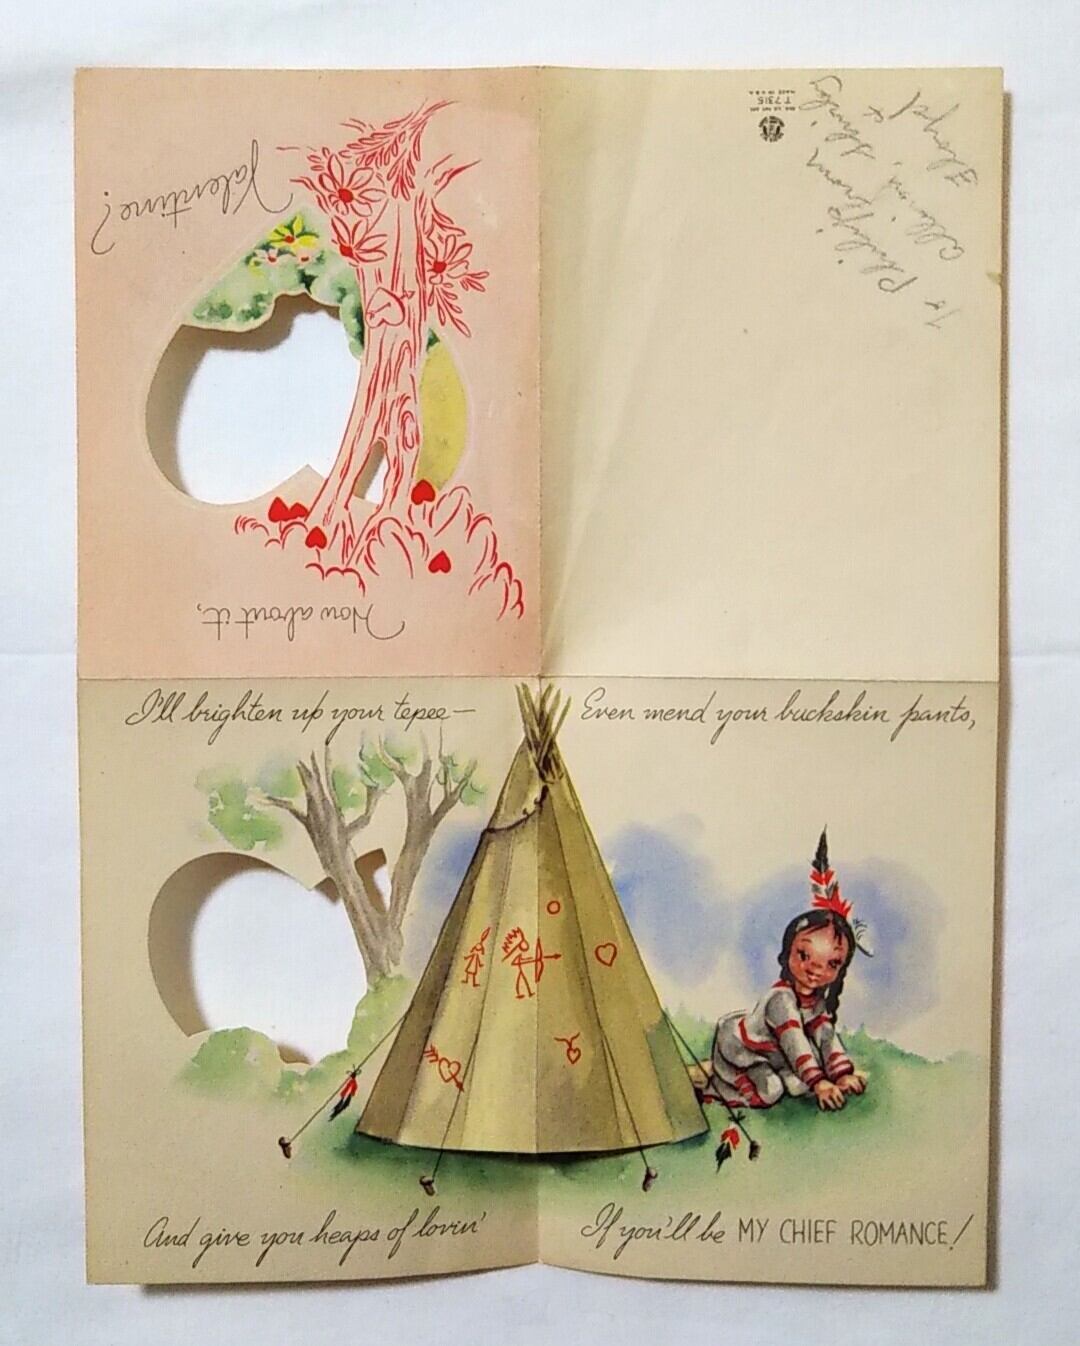 I'll brighten up your tepee—
Even mend your buckskin pants,
And give you heaps of lovin'
If you'll be MY CHIEF ROMANCE!
How about it,
Valentine?
T 7315
MADE IN U.S.A.
To Philip from
Shirley +
Floyd